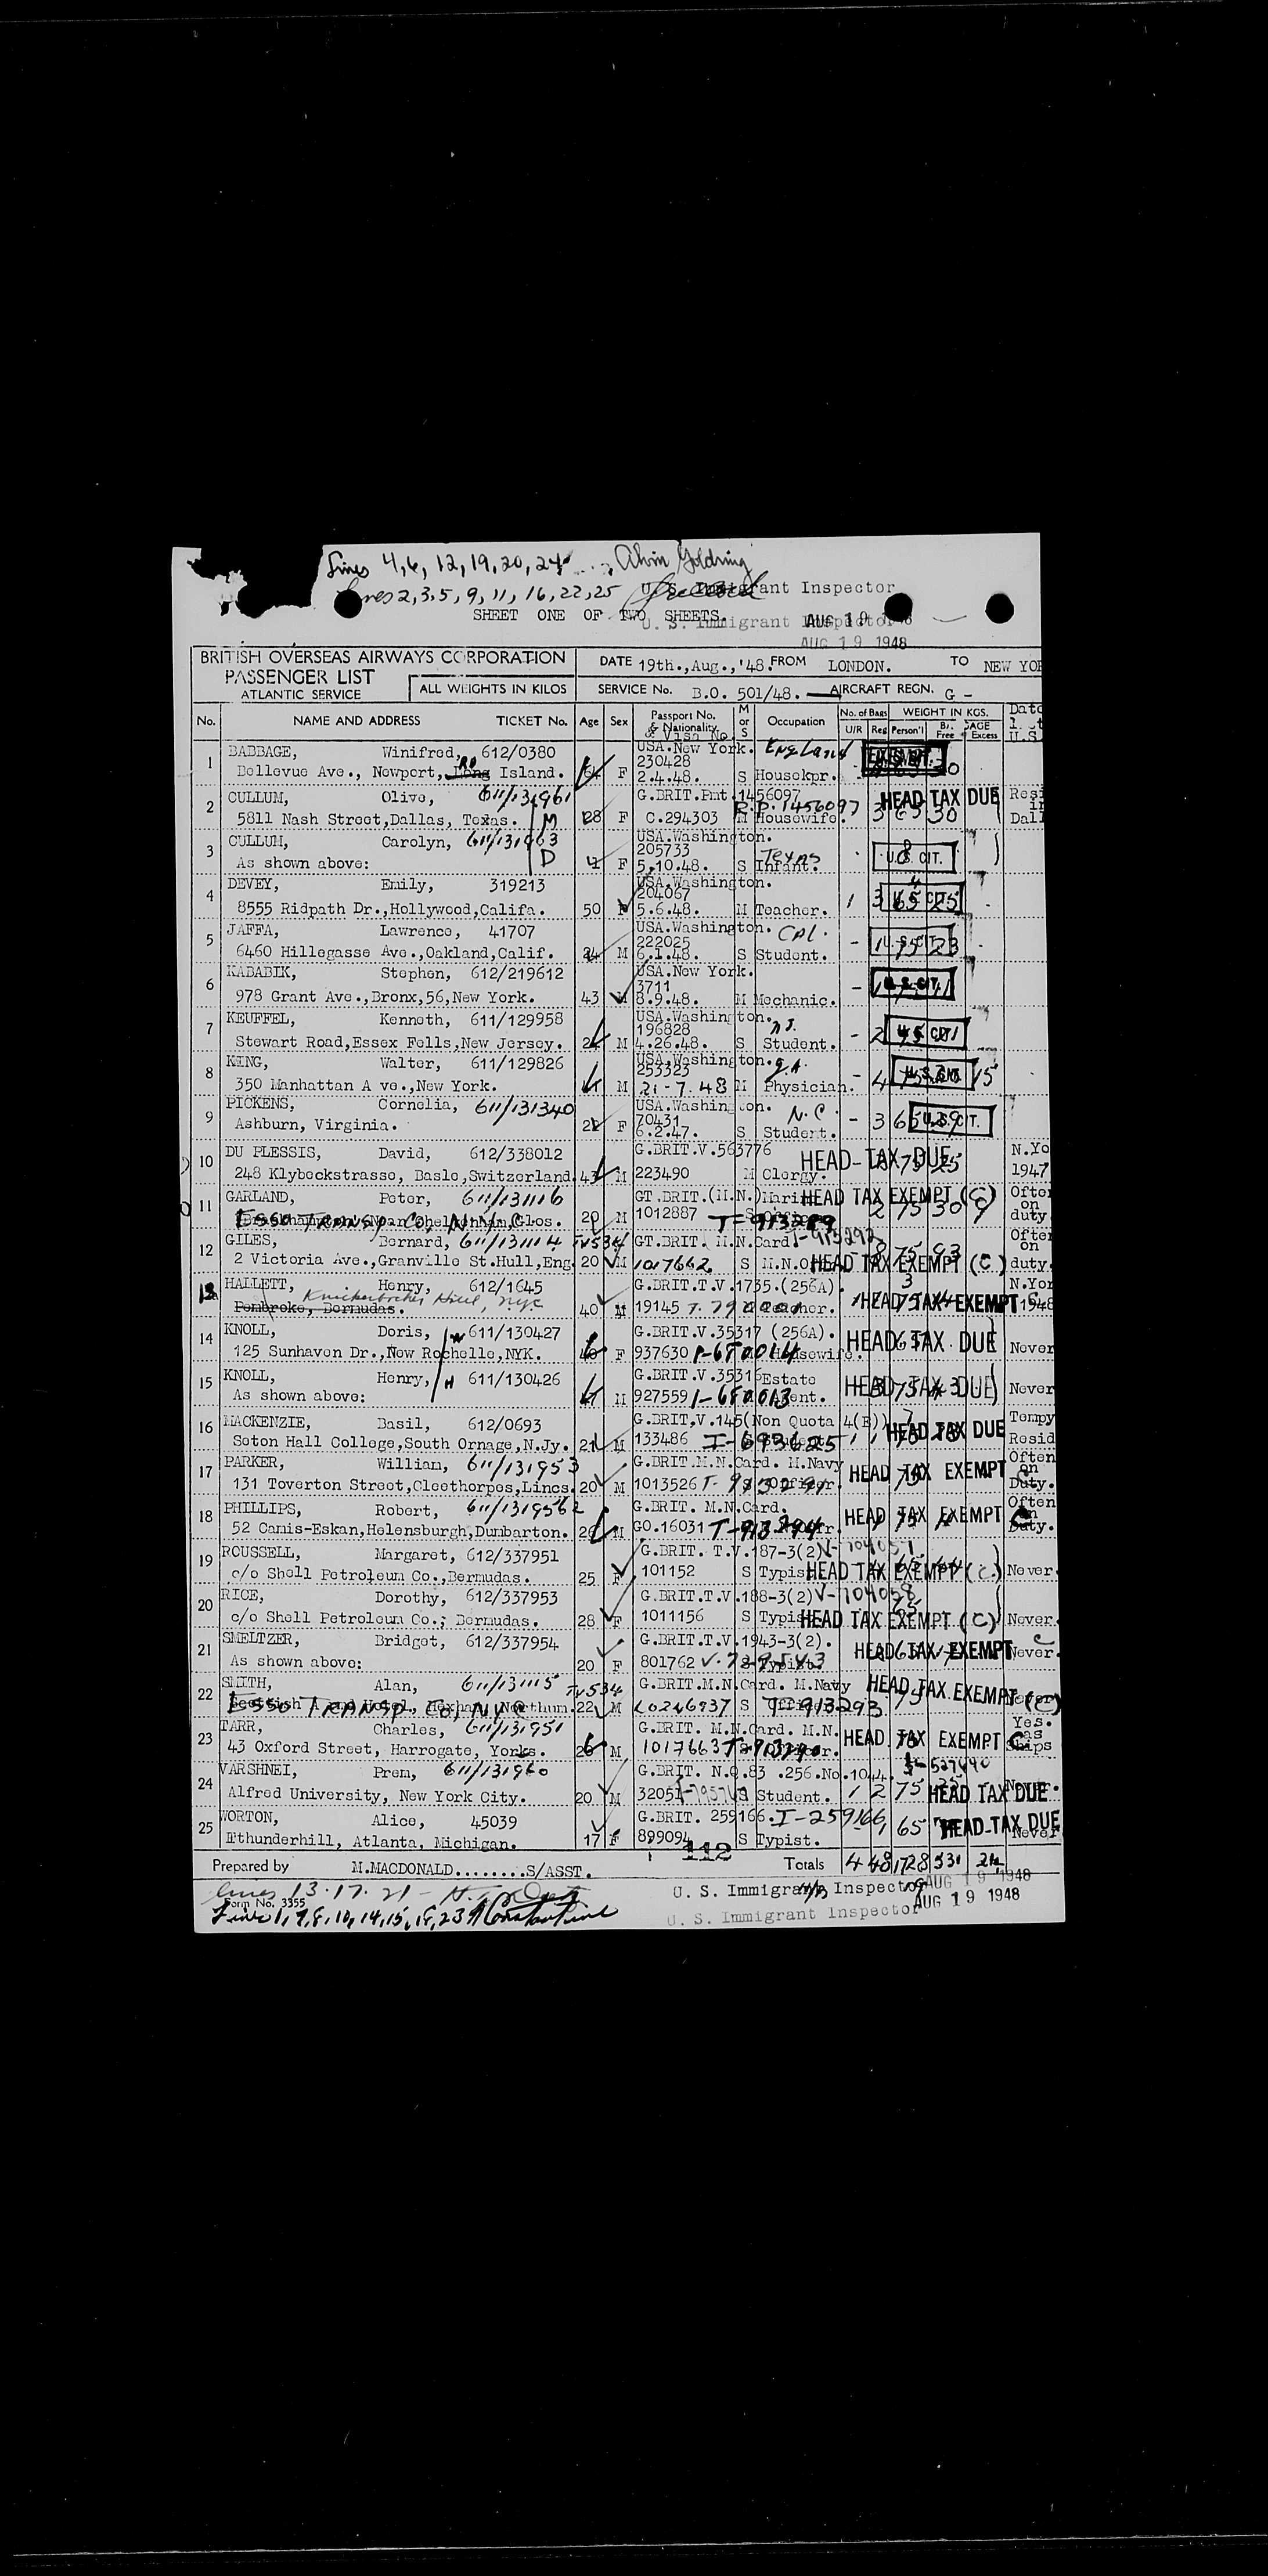 Lines 4, 6, 12, 19, 20, 24 Alvin Goldring
Lines 2, 3, 5, 9, 11, 16, 22, 25
U. S. Immigrant Inspector
SHEET ONE OF TWO SHEETS.
U. S. Immigrant Inspector
AUG 19 1948
BRITISH OVERSEAS AIRWAYS CORPORATION
PASSENGER LIST
ATLANTIC SERVICE
ALL WEIGHTS IN KILOS
DATE 19th.,Aug.,'48. FROM LONDON. TO NEW YOR
SERVICE No. B.O. 501/48. AIRCRAFT REGN. G -
No. NAME AND ADDRESS TICKET No. Age Sex Passport No. & Nationality & Visa No. M or S Occupation No. of Bags U/R Reg WEIGHT IN KGS. Person'l Free Excess Date U.S.
1 BABBAGE, Winifred, 612/0380 USA.New York. England
230428
Bellevue Ave., Newport, Island. F 2.4.48. S Housekpr.
2 CULLUM, Olive, 611/131961 G.BRIT.Pmt.1456097 HEAD TAX DUE
5811 Nash Street,Dallas, Texas. M 28 F C.294303 M Housewife. P.P. 1456097 3 65 30
3 CULLUM, Carolyn, 611/131963 USA.Washington.
205733 Texas
As shown above: D 4 F 5.10.48. S Infant. U.S. CIT.
4 DEVEY, Emily, 319213 USA.Washington.
204067
8555 Ridpath Dr.,Hollywood,Califa. 50 F 5.6.48. M Teacher. 1 3 65 25
5 JAFFA, Lawrence, 41707 USA.Washington. CAL.
222025
6460 Hillegasse Ave.,Oakland,Calif. 24 M 6.1.48. S Student. - 1 75 23
6 KABABIK, Stephen, 612/219612 USA.New York.
3711
978 Grant Ave.,Bronx,56,New York. 43 M 8.9.48. M Mechanic. - U.S. CIT.
7 KEUFFEL, Kenneth, 611/129958 USA.Washington. N.J.
196828
Stewart Road,Essex Fells,New Jersey. M 4.26.48. S Student. - 2
8 KING, Walter, 611/129826 USA.Washington.
253323
350 Manhattan A ve.,New York. M 21-7.48 M Physician. - 4 15
9 PICKENS, Cornelia, 611/131340 USA.Washington. N.C.
70431
Ashburn, Virginia. F 6.2.47. S Student. - 3 65 U.S. CIT.
10 DU PLESSIS, David, 612/338012 G.BRIT.V.563776 HEAD TAX DUE N.Yo
248 Klybeckstrasse, Basle,Switzerland. 43 M 223490 M Clergy. 75 25 1947
11 GARLAND, Peter, 611/131116 GT.BRIT.(M.N.) HEAD TAX EXEMPT (C) Often
Esso Transp. Co. N.Y.C. Glos. 20 M 1012887 T-913289 2 75 30 on duty.
12 GILES, Bernard, 611/131114 TV534 GT.BRIT. M.N.Card. T-913292 Often
2 Victoria Ave.,Granville St.Hull,Eng. 20 M 1017662 S M.N.O HEAD TAX EXEMPT (C) on duty.
13 HALLETT, Henry, 612/1645 G.BRIT.T.V.1735.(256A). N.Yor
Pembroke, Bermudas. Knickerbocker Hotel, NYC 40 M 19145 HEAD TAX EXEMPT 1948
14 KNOLL, Doris, W 611/130427 G.BRIT.V.35317 (256A). HEAD TAX DUE
125 Sunhaven Dr.,New Rochelle,NYK. F 937630 I-680014 Housewife. Never
15 KNOLL, Henry, H 611/130426 G.BRIT.V.35316 Estate HEAD TAX DUE
As shown above: M 927559 I-680013 Agent. Never
16 MACKENZIE, Basil, 612/0693 G.BRIT.V.145(Non Quota 4(E)) HEAD TAX DUE Tempy
Seton Hall College,South Ornage,N.Jy. 21 M 133486 I-693625 Resid
17 PARKER, William, 611/131953 G.BRIT.M.N.Card. M.Navy HEAD TAX EXEMPT Often
131 Toverton Street,Cleethorpes,Lincs. 20 M 1013526 on Duty.
18 PHILLIPS, Robert, 611/1319562 G.BRIT. M.N.Card. HEAD TAX EXEMPT Often
52 Camis-Eskan,Helensburgh,Dumbarton. M GO.16031 T-913294 on Duty.
19 ROUSSELL, Margaret, 612/337951 G.BRIT. T.V.187-3(2) V-704057
c/o Shell Petroleum Co.,Bermudas. 25 F 101152 S Typist HEAD TAX EXEMPT (C) Never.
20 RICE, Dorothy, 612/337953 G.BRIT.T.V.188-3(2) V-704058
c/o Shell Petroleum Co.; Bermudas. 28 F 1011156 S Typist HEAD TAX EXEMPT (C) Never.
21 SMELTZER, Bridget, 612/337954 G.BRIT.T.V.1943-3(2). HEAD TAX EXEMPT C
As shown above: 20 F 801762 Typist. Never.
22 SMITH, Alan, 611/131115 TV534 G.BRIT.M.N.Card. M.Navy HEAD TAX EXEMPT (C)
Esso Transp. Co, NYC 22 M T-913293
23 TARR, Charles, 611/131951 G.BRIT. M.N.Card. M.N. HEAD TAX EXEMPT C Yes.
43 Oxford Street, Harrogate, Yorks. M 1017663 T-913290 Ships
24 VARSHNEI, Prem, 611/131960 G.BRIT. N.Q.83 .256.No.104.
Alfred University, New York City. 20 M S Student. 1 2 75 HEAD TAX DUE
25 WORTON, Alice, 45039 G.BRIT. 259166. I-259166
Ethunderhill, Atlanta, Michigan. 17 F 899094 S Typist. 65 HEAD TAX DUE Never
112
Prepared by M.MACDONALD........S/ASST. Totals 4 48 1728 531 24
Lines 13. 17. 21 U. S. Immigrant Inspector AUG 19 1948
Form No. 3355
Lines 1, 7, 8, 10, 14, 15, 18, 23 U. S. Immigrant Inspector AUG 19 1948